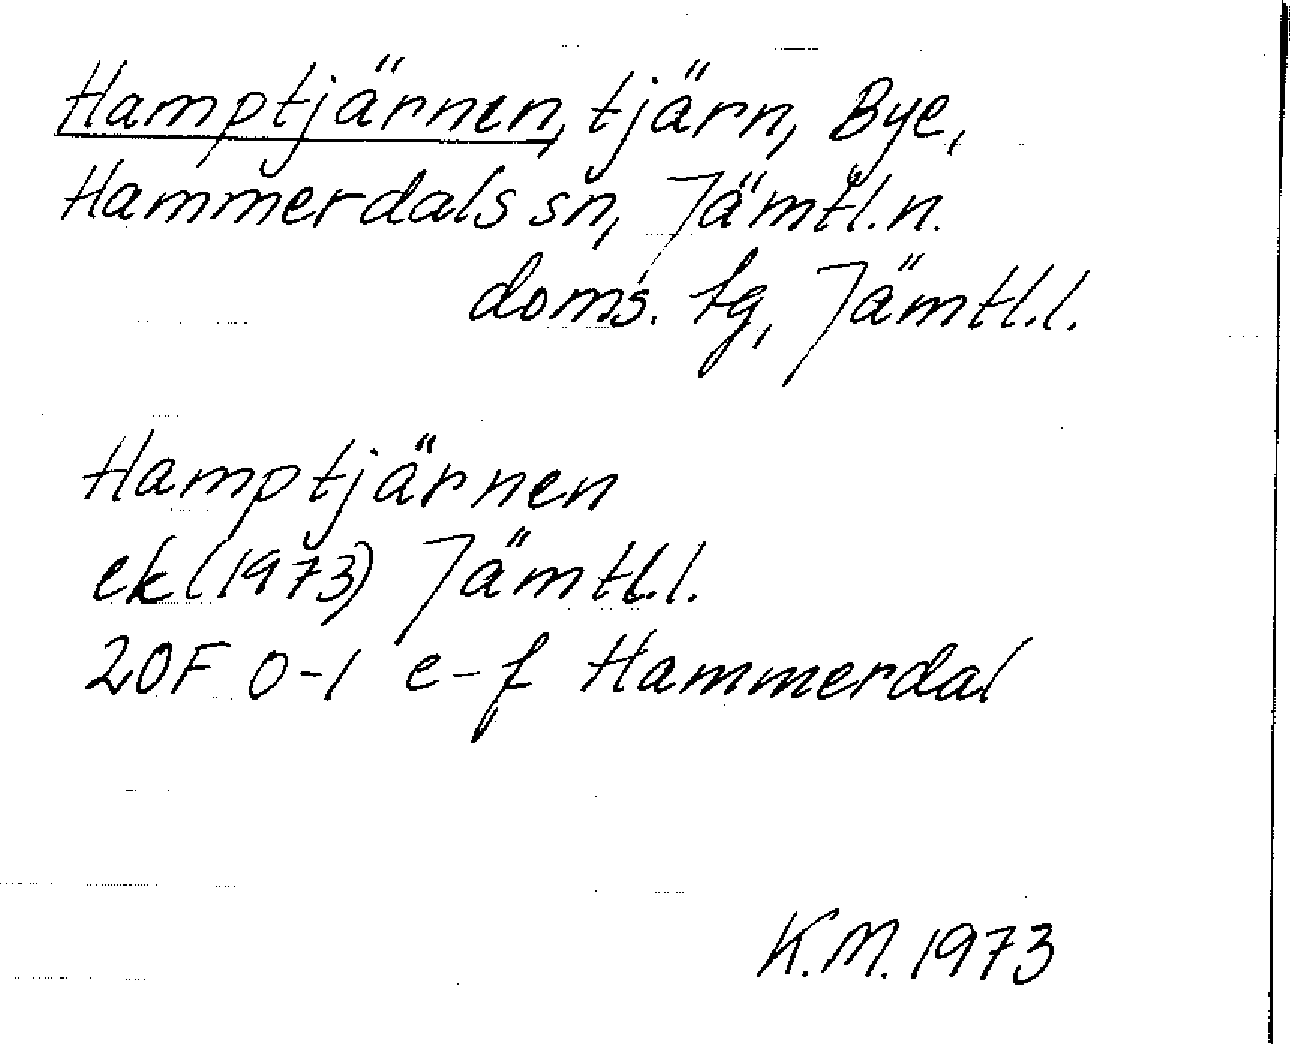 Hamptjärnen, tjärn, Bye,
Hammerdals sn, Jämtl.n.
doms. tg, Jämtl.l.
Hamptjärnen
ek (1973) Jämtl.l.
20F 0-1 e-f Hammerdal
K.M. 1973